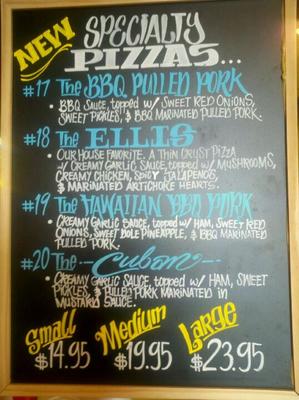 NEW SPECIALTY
PIZZAS...
#17 The BBQ PULLED PORK
• BBQ SAUCE, topped w/ SWEET RED ONIONS,
SWEET PICKLES, & BBQ MARINATED PULLED PORK.
#18 The ELLIS
• OUR HOUSE FAVORITE. A THIN CRUST PIZZA
w/ CREAMY GARLIC SAUCE, topped w/ MUSHROOMS,
CREAMY CHICKEN, SPICY JALAPENOS,
& MARINATED ARTICHOKE HEARTS.
#19 The HAWAIIAN BBQ PORK
• CREAMY GARLIC SAUCE, topped w/ HAM, SWEET RED
ONIONS, SWEET DOLE PINEAPPLE, & BBQ MARINATED
PULLED PORK.
#20 The Cuban
• CREAMY GARLIC SAUCE, topped w/ HAM, SWEET
PICKLES, & PULLED PORK MARINATED in
MUSTARD SAUCE.
Small Medium Large
$14.95 $19.95 $23.95